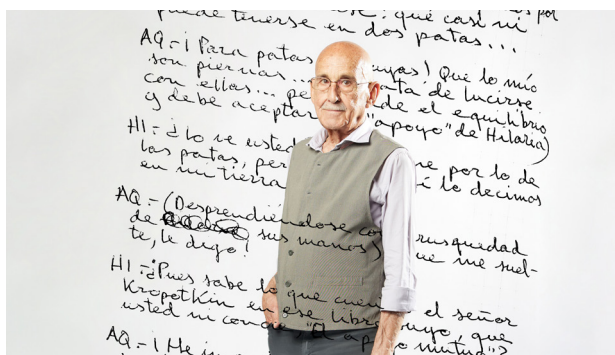 que casi ni
puede tenerse en dos patas...
AQ.- ¡Para patas uyas! Que lo mío
son piernas... ata de lucirse
con ellas... pe de el equilibrio
y debe aceptar "apoyo" de Hilaria)
HI.- ¿Lo ve usted ue por lo de
las patas, per í lo decimos
en mi tierra
AQ.- (Desprendiéndose co rusquedad
de sus manos) ue me suel-
te, le digo!
HI.- ¿Pues sabe lo que cuen el señor
Kropotkin en ese libro suyo, que
usted ni conoce, "El apoyo mutuo"?
AQ.- ¡Me